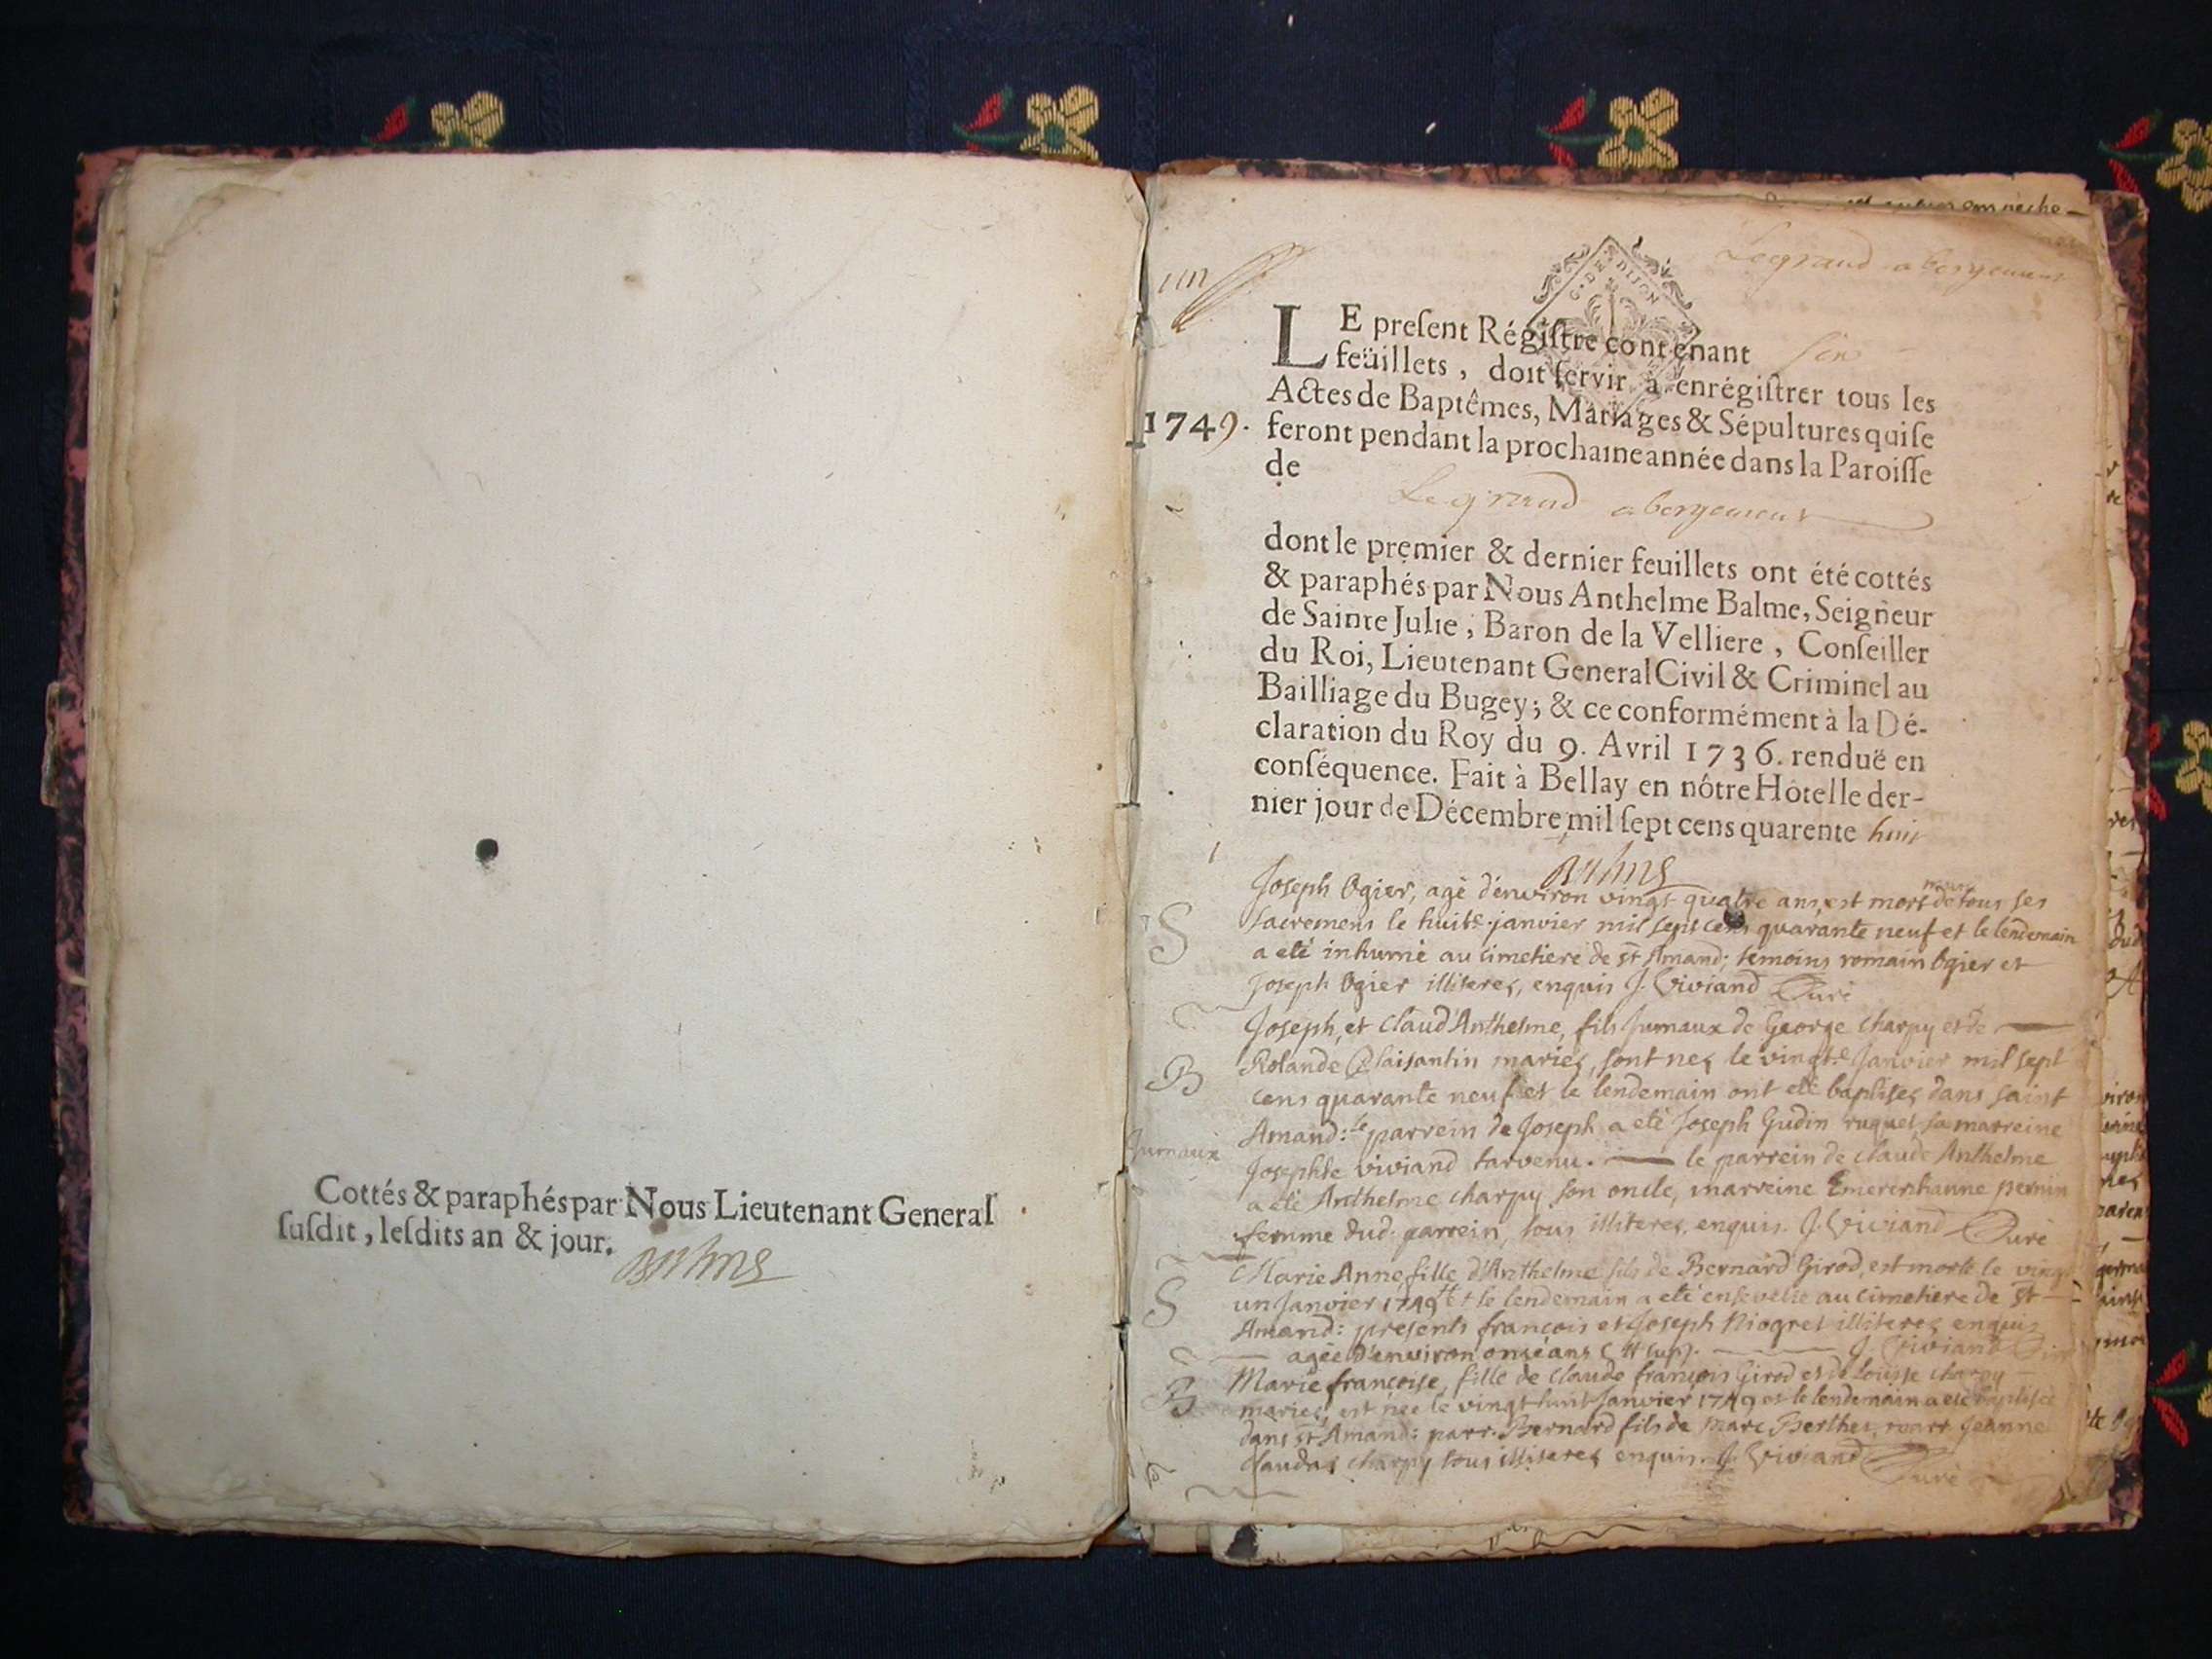 Cottés & paraphés par Nous Lieutenant General
susdit, lesdits an & jour.
Balme
Legrand abergement
G. DE DIJON
LE present Régistre contenant six
feüillets, doit servir à enrégistrer tous les
Actes de Baptêmes, Mariages & Sépultures qui se
1749. feront pendant la prochaine année dans la Paroisse
de
Le grand abergement
dont le premier & dernier feuillets ont été cottés
& paraphés par Nous Anthelme Balme, Seigneur
de Sainte Julie, Baron de la Velliere, Conseiller
du Roi, Lieutenant General Civil & Criminel au
Bailliage du Bugey; & ce conformément à la Dé-
claration du Roy du 9. Avril 1736. renduë en
conséquence. Fait à Bellay en nôtre Hôtel le der-
nier jour de Décembre mil sept cens quarente huit
Balme
Joseph Ogier, agé d'environ vingt quatre ans, est mort de tous ses
S
sacremens le huite janvier mil sept cens quarante neuf et le lendemain
a eté inhumé au cimetiere de st Amand; temoins romain Ogier et
Joseph Ogier illiteres, enquis J. Viviand Curé
Joseph, et Claud Anthelme, fils Jumaux de George Charpy et de
B
Rolande Plaisantin mariés, sont nes le vingte Janvier mil sept
cens quarante neuf et le lendemain ont eté baptises dans saint
Amand: le parrein de Joseph a eté Joseph Gudin ruquet, sa marreine
Jumaux
Josephte viviand tarvenu. le parrein de claude Anthelme
a eté Anthelme charpy son oncle, marreine Emerentianne pernin
femme dud. parrein, tous illiteres, enquis. J. Viviand Curé
Marie Anne fille d'Anthelme fils de Bernard Girod, est morte le vingt
S
un Janvier 1749 et le lendemain a eté ensevelie au cimetiere de st
Amand: presents françois et Joseph Niogret illiteres enquis
agée d'environ onse ans J. Viviand
Marie françoise, fille de claude françois Girod et de louise charpy
B
mariés, est née le vingt huit Janvier 1749 et le lendemain a eté baptisée
dans st Amand: parr. Bernard fils de Marc Berthet, marr Jeanne
Clauda charpy tous illiteres enquis. J. Viviand Curé